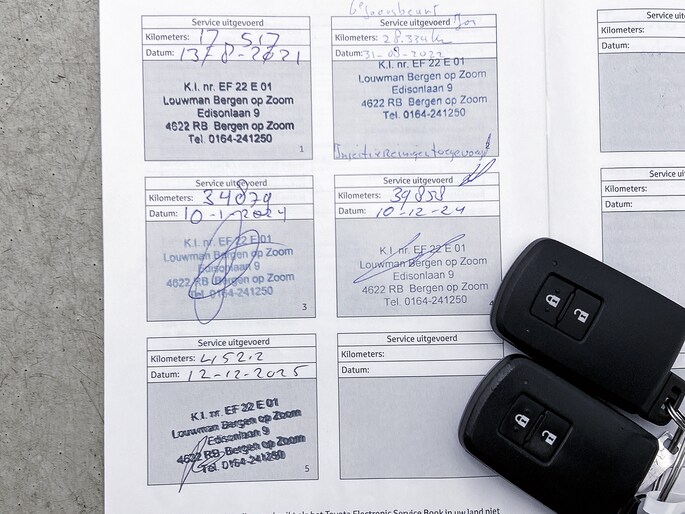 Service uitgevoerd
Kilometers: 17.517
Datum: 13-8-2021
K.I. nr. EF 22 E 01
Louwman Bergen op Zoom
Edisonlaan 9
4622 RB Bergen op Zoom
Tel. 0164-241250
1
Service uitgevoerd
Kilometers: 28.334 km
Datum: 31-08-2022
K.I. nr. EF 22 E 01
Louwman Bergen op Zoom
Edisonlaan 9
4622 RB Bergen op Zoom
Tel. 0164-241250
Service uitgevoerd
Kilometers: 34879
Datum: 10-1-2024
K.I. nr. EF 22 E 01
Louwman Bergen op Zoom
Edisonlaan 9
4622 RB Bergen op Zoom
Tel. 0164-241250
3
Service uitgevoerd
Kilometers: 39858
Datum: 10-12-24
K.I. nr. EF 22 E 01
Louwman Bergen op Zoom
Edisonlaan 9
4622 RB Bergen op Zoom
Tel. 0164-241250
Service uitgevoerd
Kilometers: 45212
Datum: 12-12-2025
K.I. nr. EF 22 E 01
Louwman Bergen op Zoom
Edisonlaan 9
4622 RB Bergen op Zoom
Tel. 0164-241250
5
Service uitgevoerd
Kilometers:
Datum:
Service
Kilometers:
Datum:
Kilometers:
Datum:
het Toyota Electronic Service Book in uw land niet